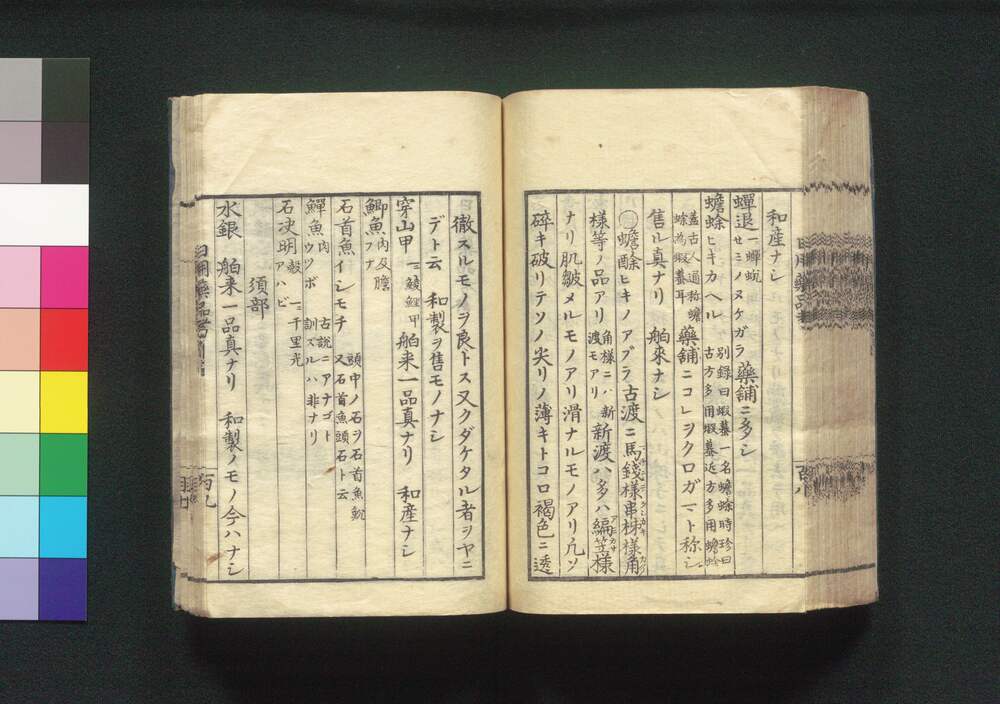 和産ナシ
蟬退 一 蟬蛻 セミノヌケガラ 藥舗ニ多シ
蟾蜍 ヒキカヘル 別録曰蝦蟇一名蟾蜍時珍曰
古方多用蝦蟇近方多用蟾蜍
蓋古人通称蟾
蜍為蝦蟇耳 藥舗ニコレヲクロガマト称シ
售ル真ナリ 舶來ナシ
○蟾酥 ヒキノアブラ 古渡ニ馬錢様串柹様角
様等ノ品アリ 角様ニハ新
渡モアリ 新渡ハ多ハ編笠様
ナリ肌皺メルモノアリ滑ナルモノアリ凡ソ
碎キ破リテソノ尖リノ薄キトコロ褐色ニ透
徹スルモノヲ良トス又クダケタル者ヲヤニ
デト云 和製ヲ售モノナシ
穿山甲 一ニ鯪鯉甲 舶来一品真ナリ 和産ナシ
鯽魚 肉及膽 フナ
石首魚 イシモチ 頭中ノ石ヲ石首魚魫
又石首魚頭石ト云
鱓魚 肉 ウツボ 古説ニアナゴト
訓ズルハ非ナリ
石决明 殻 アハビ 一ニ千里光
須部
水銀 舶来一品真ナリ 和製ノモノ今ハナシ
日用藥品考
百八
百九